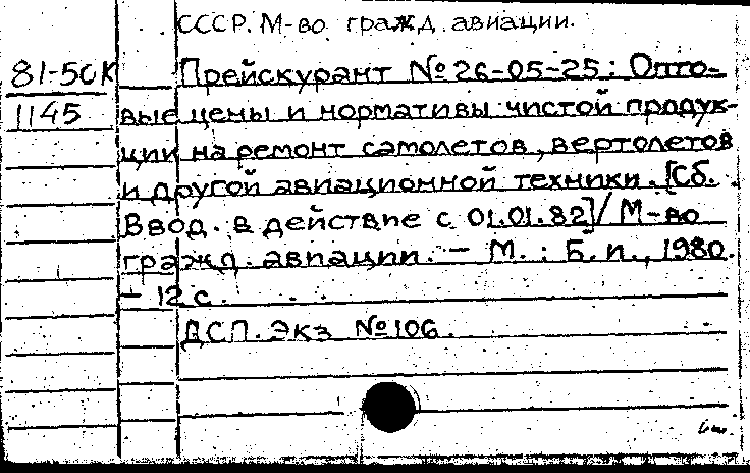 СССР. М-во гражд. авиации.
81-5СК Прейскурант № 26-05-25: Опто-
1145 вые цены и нормативы чистой продук-
ции на ремонт самолетов, вертолетов
и другой авиационной техники. [Сб.
Ввод. в действие с 01.01.82]/ М-во
гражд. авиации. — М.: Б.и., 1980.
— 12 с.
ДСП. Экз №106.